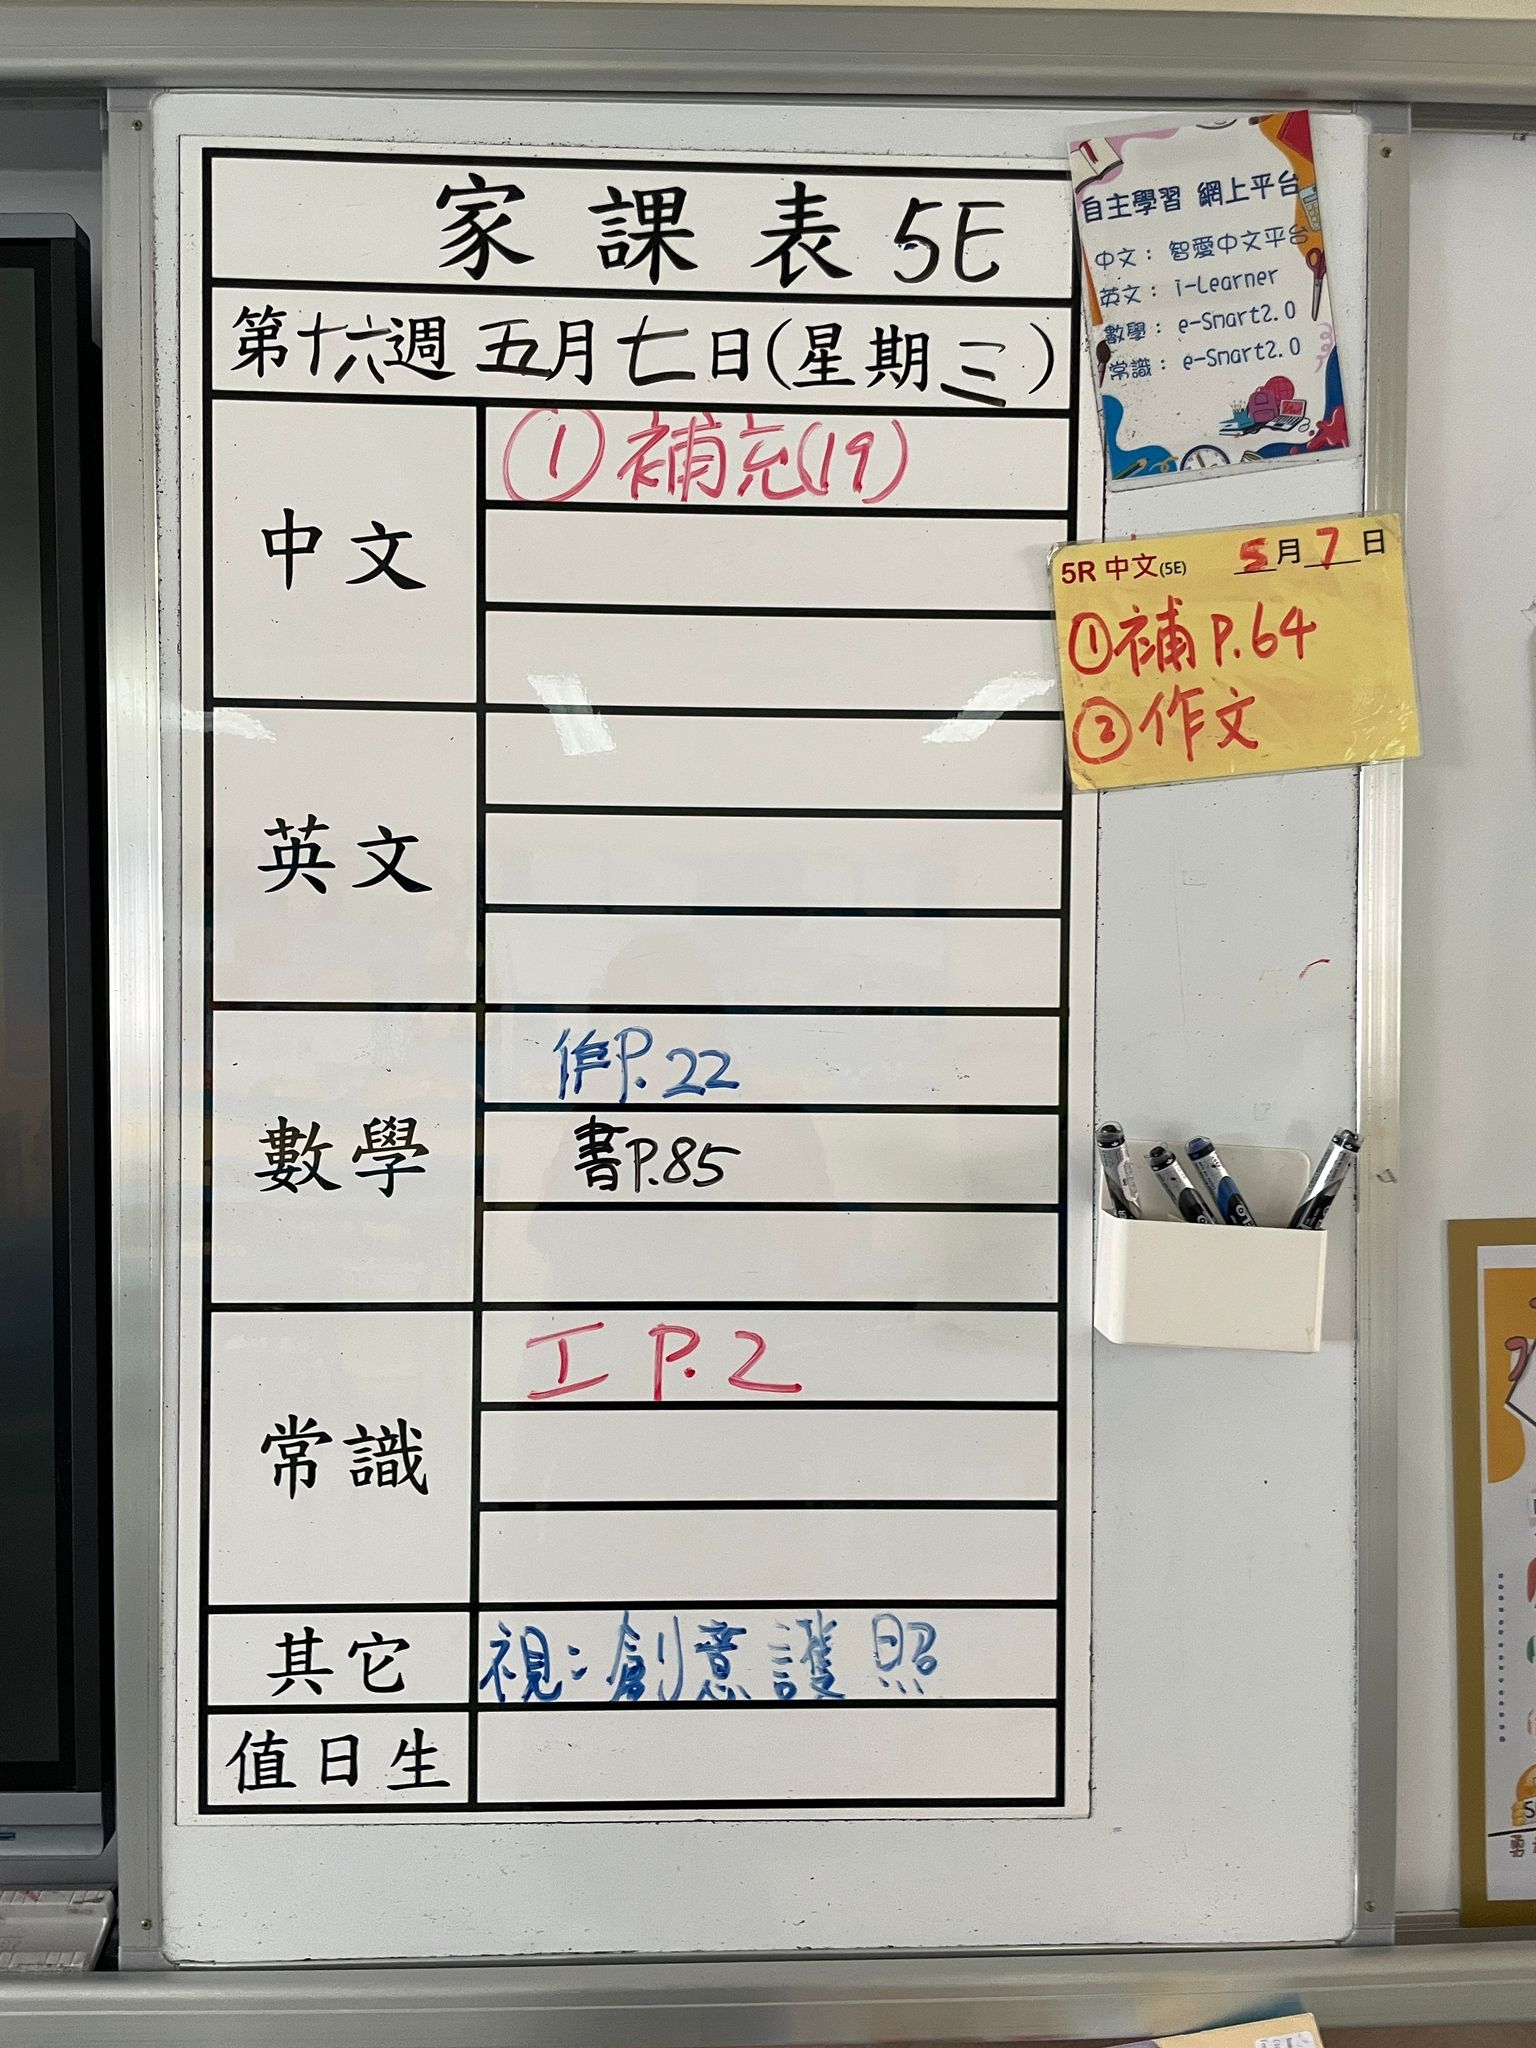 家課表 5E
第十六週 五月七日(星期三)
中文
① 補充(19)
英文
數學
作P.22
書P.85
常識
工 P.2
其它
視：創意護照
值日生
自主學習 網上平台
中文： 智愛中文平台
英文： i-Learner
數學： e-Smart2.0
常識： e-Smart2.0
5R 中文(5E) 5月7日
①補 P.64
②作文